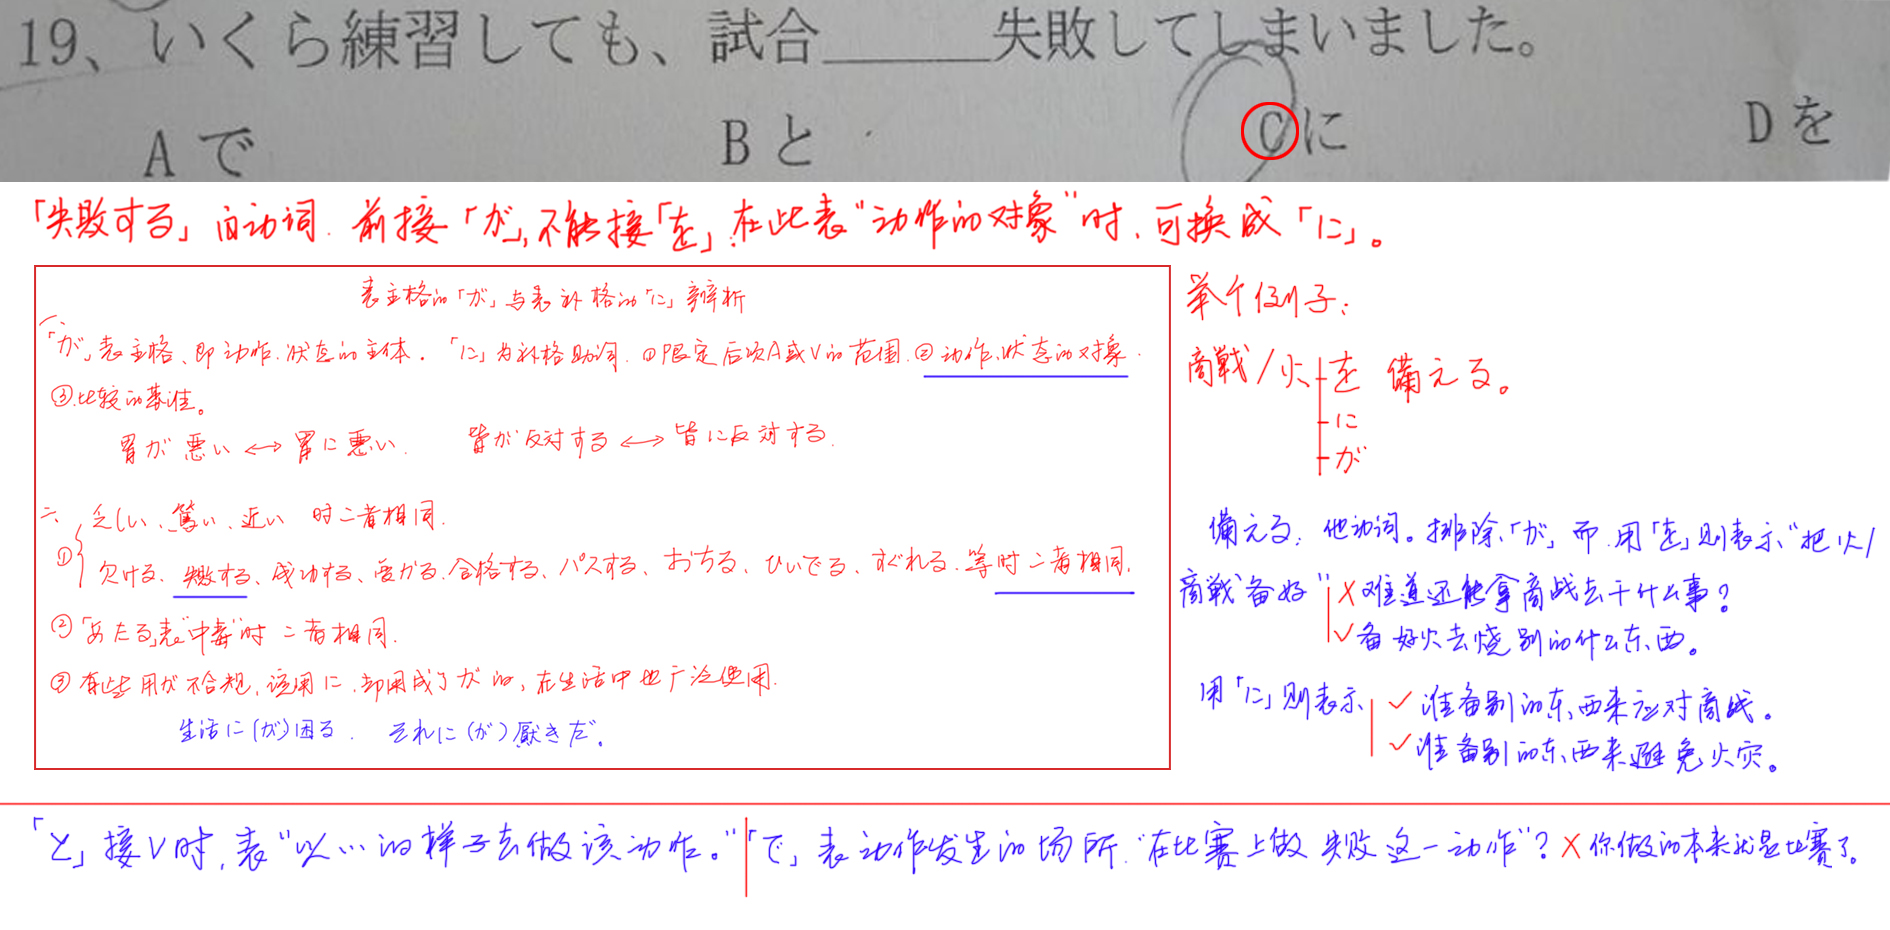 19、いくら練習しても、試合______失敗してしまいました。
A で B と C に D を
「失敗する」自动词.前接「が」,不能接「を」,在此表“动作的对象”时,可换成「に」。
表主格的「が」与表补格的「に」辨析
一、
「が」表主格、即动作.状态的主体.「に」为补格助词.①限定后项A或V的范围.②动作、状态的对象.
③比较的基准。
胃が悪い ↔ 胃に悪い. 皆が反対する ↔ 皆に反対する.
二、 乏しい、篤い、近い 时二者相同.
① 欠ける、失敗する、成功する、受かる、合格する、パスする、おちる、ひいでる、すぐれる.等时二者相同.
②「あたる」表“中毒”时 二者相同.
③ 有些用が不合规,该用に.却用成了が的,在生活中也广泛使用.
生活に(が)困る. それに(が)厭きだ。
举个例子:
商戦/火 を 備える。
に
が
備える:他动词。排除「が」而.用「を」则表示“把火/
商戦备好” ×难道还能拿商战去干什么事?
✓备好火去烧别的什么东西。
用「に」则表示 ✓准备别的东西来应对商战。
✓准备别的东西来避免火灾。
「と」接V时,表“以…的样子去做该动作。” 「で」表动作发生的场所.“在比赛上做 失败 这一动作”? ×你做的本来就是比赛了。